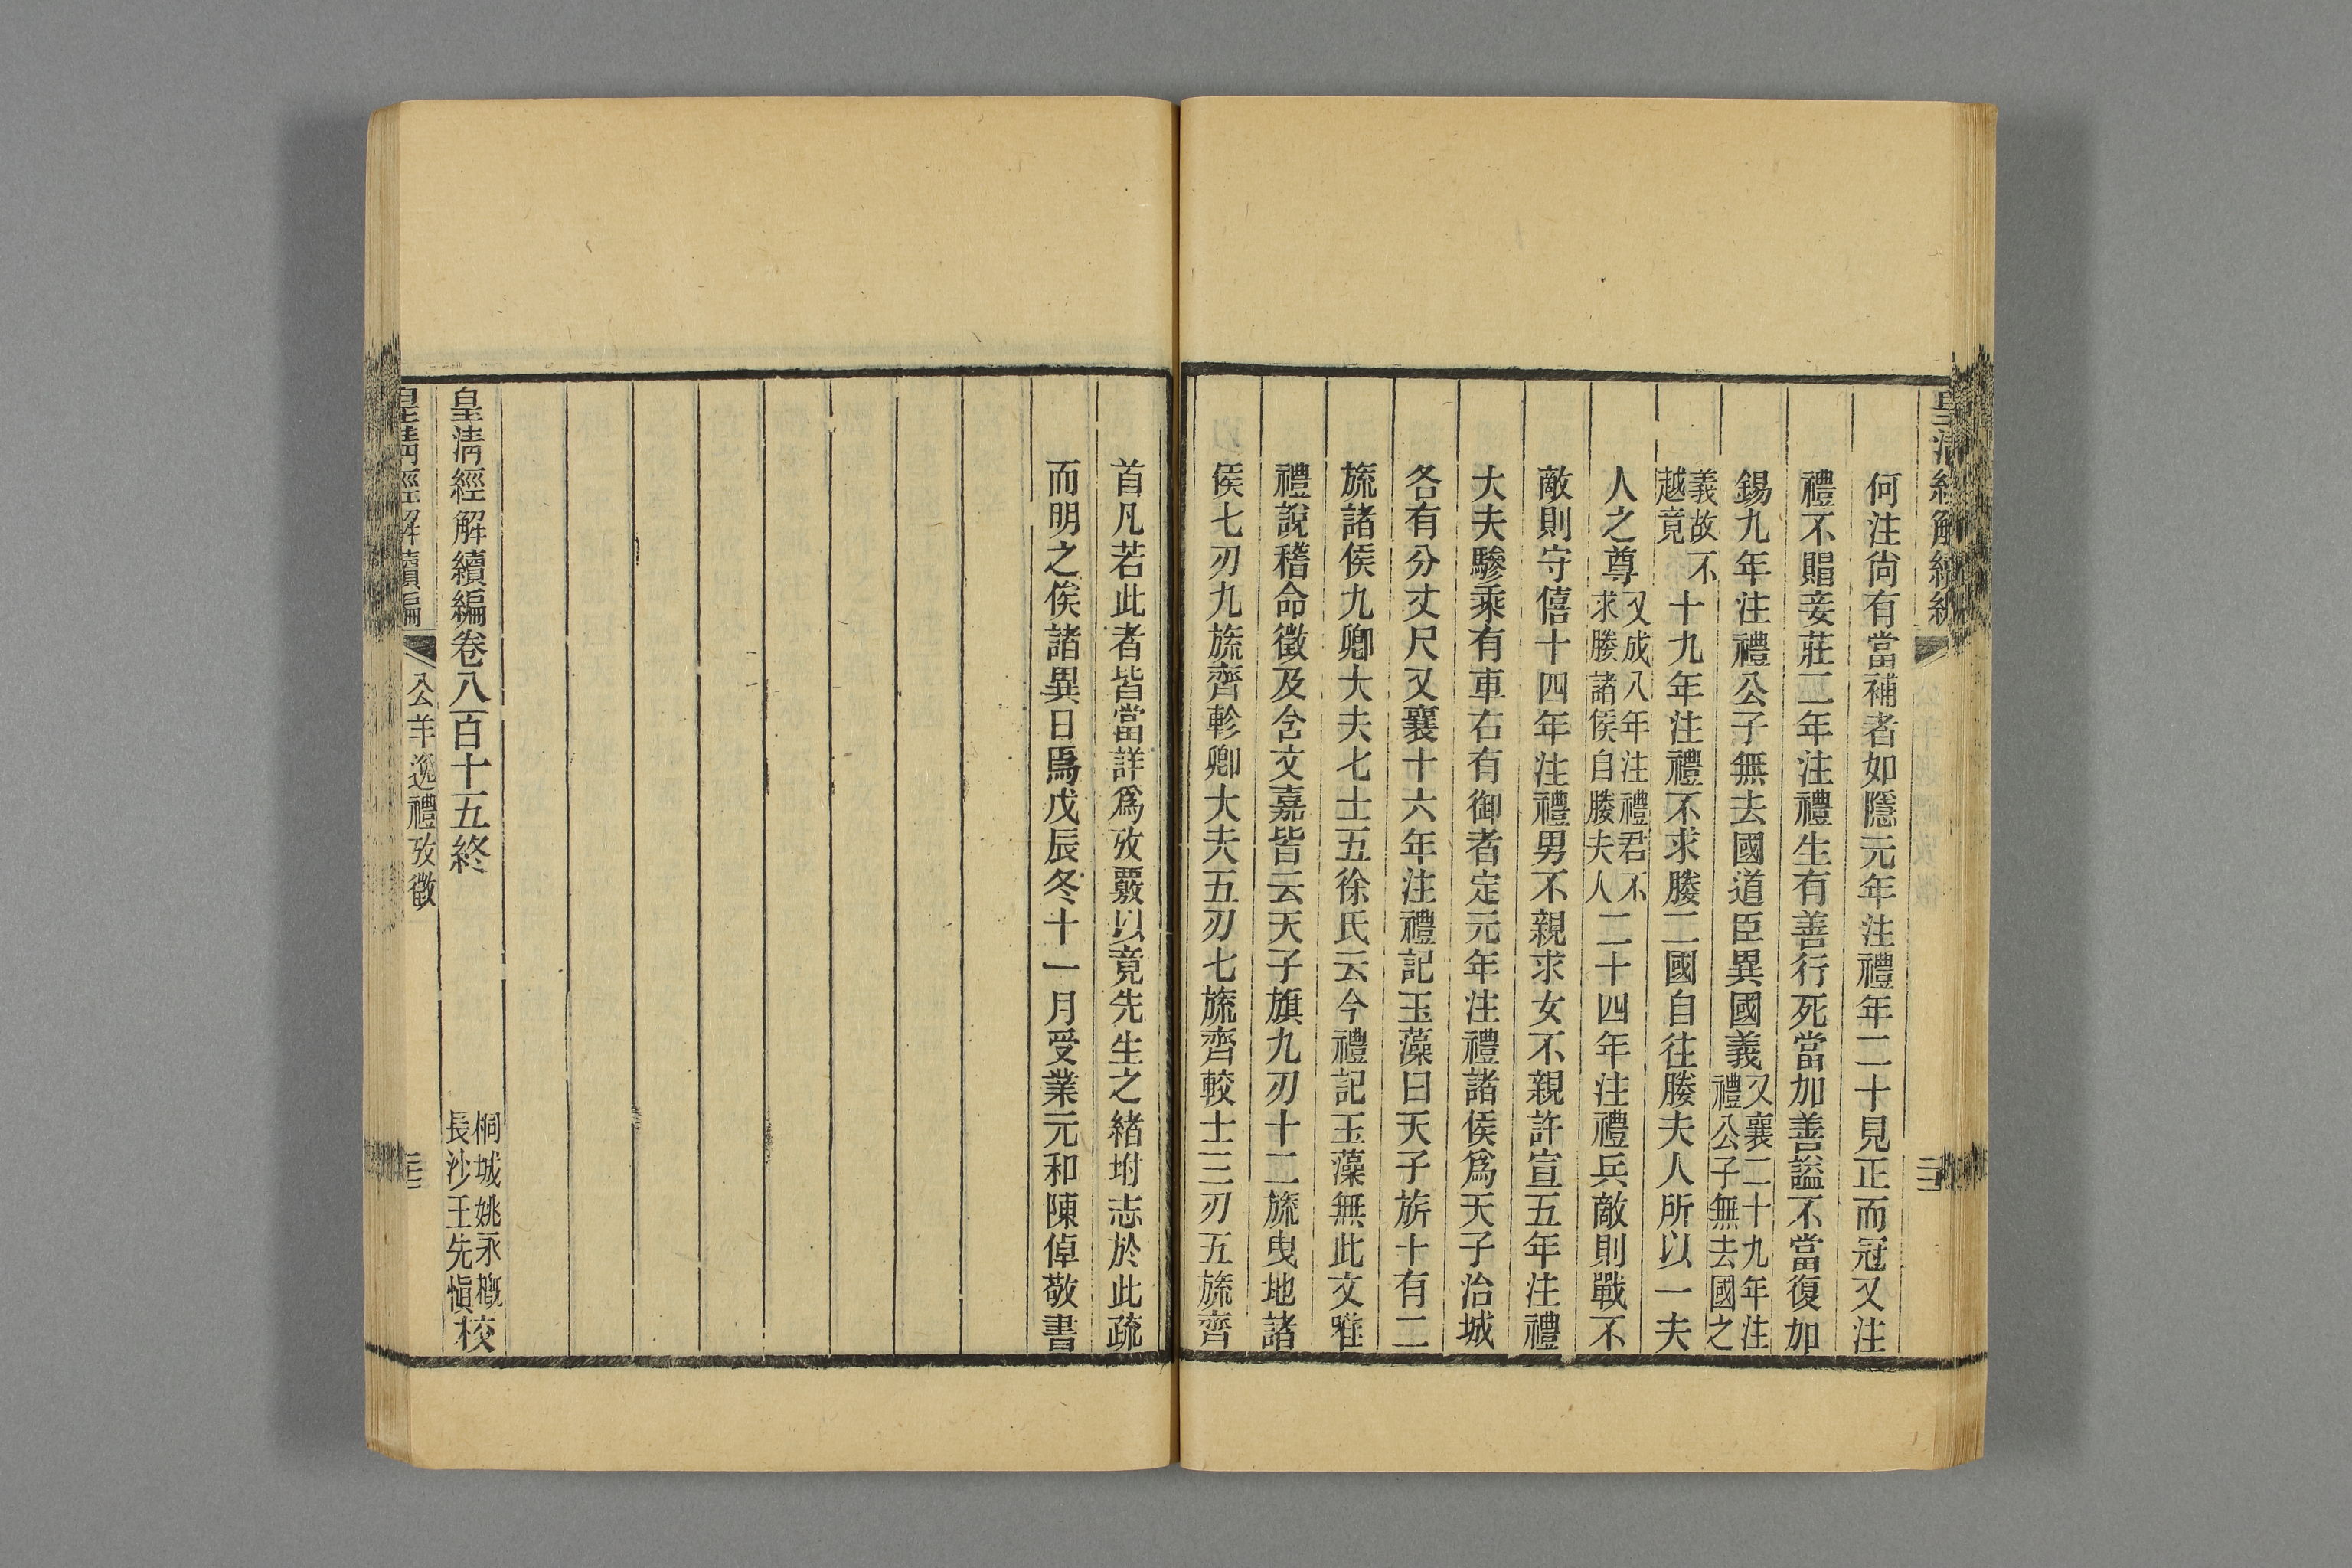 何注尙有當補者如隱元年注禮年二十見正而冠又注
禮不賵妾莊二年注禮生有善行死當加善諡不當復加
錫九年注禮公子無去國道臣異國義又襄二十九年注禮公子無去國之
義故不越竟十九年注禮不求媵二國自往媵夫人所以一夫
人之尊又成八年注禮君不求媵諸侯自媵夫人二十四年注禮兵敵則戰不
敵則守僖十四年注禮男不親求女不親許宣五年注禮
大夫驂乘有車右有御者定元年注禮諸侯爲天子治城
各有分丈尺又襄十六年注禮記玉藻曰天子旂十有二
旒諸侯九卿大夫七士五徐氏云今禮記玉藻無此文唯
禮說稽命徵及含文嘉皆云天子旗九刃十二旒曳地諸
侯七刃九旒齊軫卿大夫五刃七旒齊較士三刃五旒齊
首凡若此者皆當詳爲攷覈以竟先生之緖坿志於此疏
而明之俟諸異日焉戊辰冬十一月受業元和陳倬敬書
皇淸經解續編卷八百十五終
桐城姚永概
長沙王先愼校
皇淸經解續編 公羊逸禮攷徵